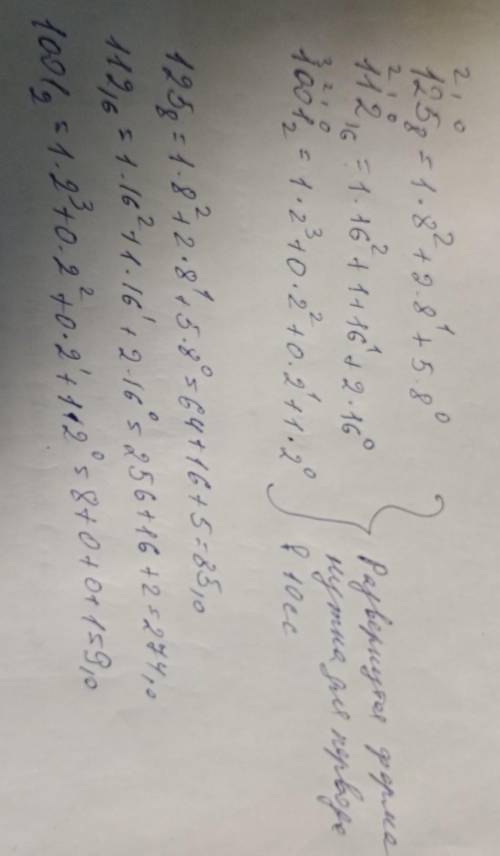 2 1 0
125₈ = 1·8² + 2·8¹ + 5·8⁰
2 1 0
112₁₆ = 1·16² + 1+16¹ + 2·16⁰
3 2 1 0
1001₂ = 1·2³ + 0·2² + 0·2¹ + 1·2⁰
Развернутая форма
нужна для перевода
в 10 сс
125₈ = 1·8² + 2·8¹ + 5·8⁰ = 64 + 16 + 5 = 85₁₀
112₁₆ = 1·16² + 1·16¹ + 2·16⁰ = 256 + 16 + 2 = 274₁₀
1001₂ = 1·2³ + 0·2² + 0·2¹ + 1·2⁰ = 8 + 0 + 0 + 1 = 9₁₀